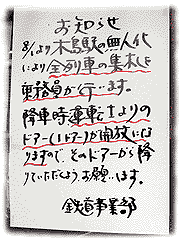 お知らせ
8/1より木島駅無人化
により全列車の集札を
乗務員が行います。
降車時運転士よりの
ドアー(1ドア)が開放いたし
ますので、そのドアーから降り
ていただくようお願います。
鉄道事業部